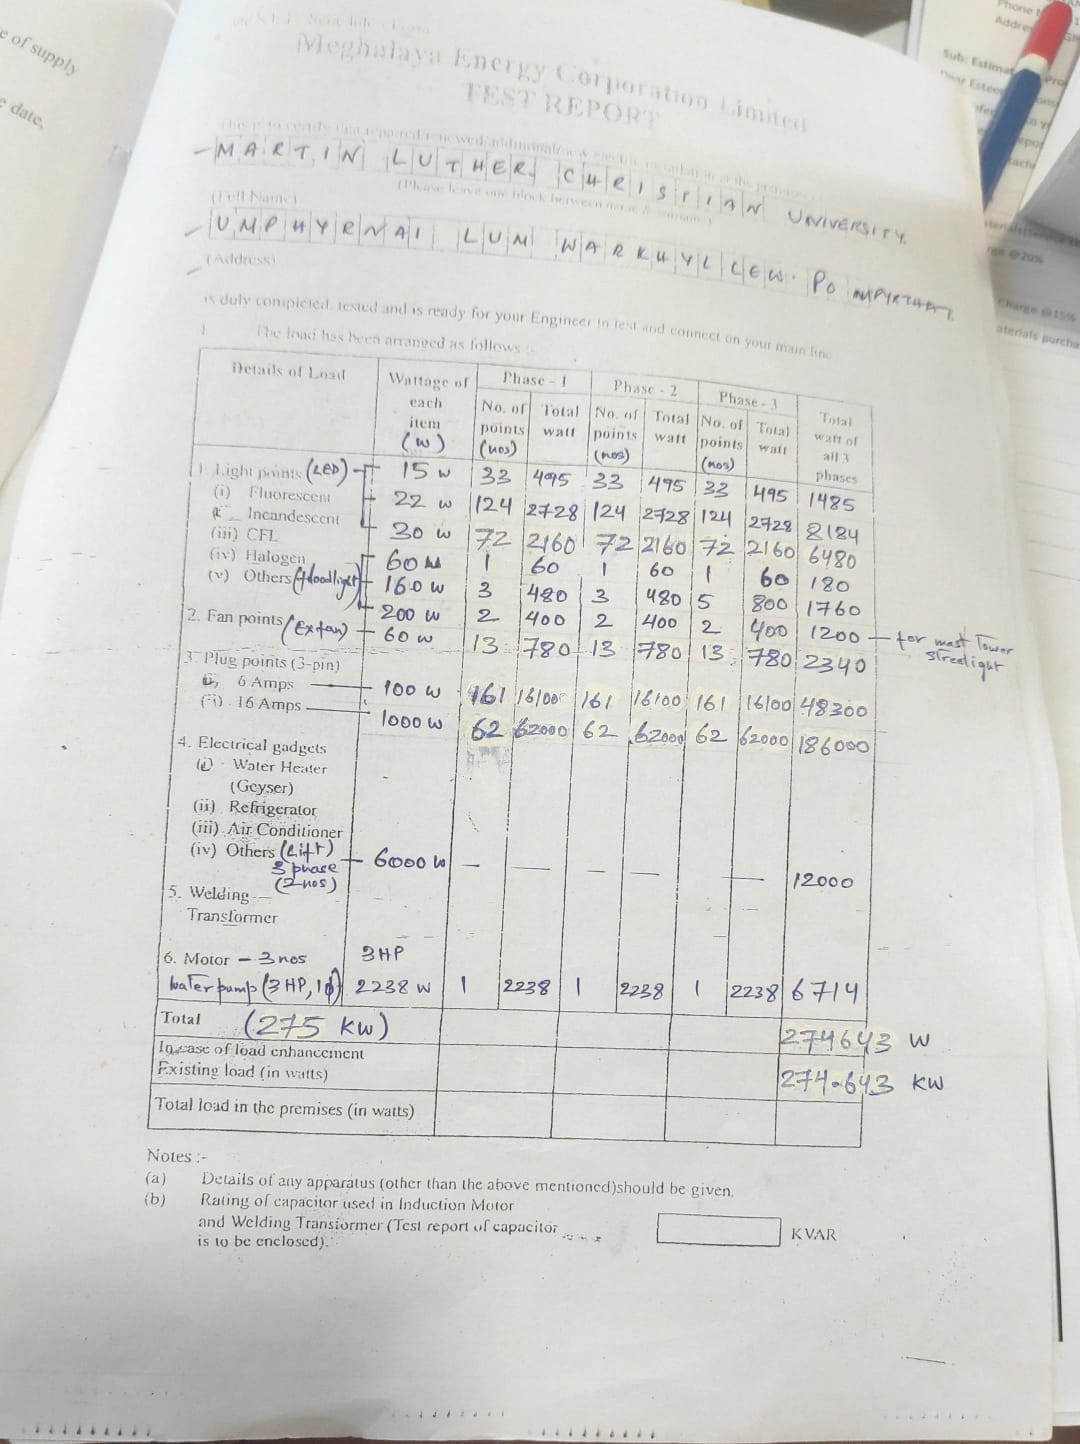 e of supply
e date,
Phone
Addre
Sub: Estimat
Meghalaya Energy Corporation Limited
TEST REPORT
MARTIN LUTHER CHRISTIAN UNIVERSITY.
(Please leave one block between name & surname)
(Full Name)
UMPHYRNAI LUM WARKHYLLEW. PO MAPYRTHAT.
(Address)
is duly completed, tested and is ready for your Engineer to test and connect on your main line
1. The load has been arranged as follows :-
Details of Load Wattage of each item (W) Phase - 1 Phase - 2 Phase - 3 Total watt of all 3 phases
No. of points (nos) Total watt No. of points (nos) Total watt No. of points (nos) Total watt
1. Light points (LED) 15 W 33 495 33 495 33 495 1485
(i) Fluorescent 22 W 124 2728 124 2728 124 2728 8184
Incandescent
(iii) CFL 30 W 72 2160 72 2160 72 2160 6480
(iv) Halogen 60 W 1 60 1 60 1 60 180
(v) Others (floodlight) 160 W 3 480 3 480 5 800 1760
200 W 2 400 2 400 2 400 1200 - for mast Tower streelight
2. Fan points (Ex fan) 60 W 13 780 13 780 13 780 2340
3. Plug points (3-pin)
6 Amps 100 W 161 16100 161 16100 161 16100 48300
16 Amps 1000 W 62 62000 62 62000 62 62000 186000
4. Electrical gadgets
(i) Water Heater
(Geyser)
(ii) Refrigerator
(iii) Air Conditioner
(iv) Others (Lift) 6000 W — — — — — — 12000
3 phase
(2 nos)
5. Welding
Transformer
6. Motor - 3 nos 3 HP
Water pump (3 HP, 1ϕ) 2238 W 1 2238 1 2238 1 2238 6714
Total (275 KW) 274643 W
In case of load enhancement
Existing load (in watts) 274.643 KW
Total load in the premises (in watts)
Notes :-
(a) Details of any apparatus (other than the above mentioned)should be given.
(b) Rating of capacitor used in Induction Motor
and Welding Transformer (Test report of capacitor
is to be enclosed). KVAR